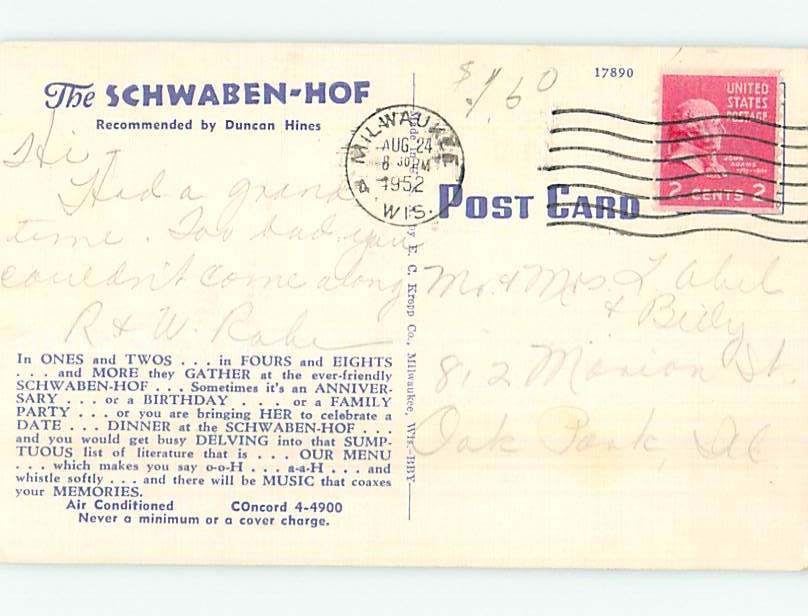 The SCHWABEN-HOF
Recommended by Duncan Hines
Hi -
Had a grand
time. Too bad you
couldn't come along
R & W. Rabe
In ONES and TWOS . . . in FOURS and EIGHTS
. . . and MORE they GATHER at the ever-friendly
SCHWABEN-HOF . . . Sometimes it's an ANNIVER-
SARY . . . or a BIRTHDAY . . . or a FAMILY
PARTY . . . or you are bringing HER to celebrate a
DATE . . . DINNER at the SCHWABEN-HOF . . .
and you would get busy DELVING into that SUMP-
TUOUS list of literature that is . . . OUR MENU
. . . which makes you say o-o-H . . . a-a-H . . . and
whistle softly . . . and there will be MUSIC that coaxes
your MEMORIES.
Air Conditioned COncord 4-4900
Never a minimum or a cover charge.
by E. C. Kropp Co., Milwaukee, Wis.-BBY
$1.60
17890
MILWAUKEE
AUG 24
8 30 PM
1952
WIS.
UNITED
STATES
POSTAGE
JOHN
ADAMS
2 CENTS 2
POST CARD
Mr. & Mrs. L Abel
& Billy
812 Marion St.
Oak Park, Ill